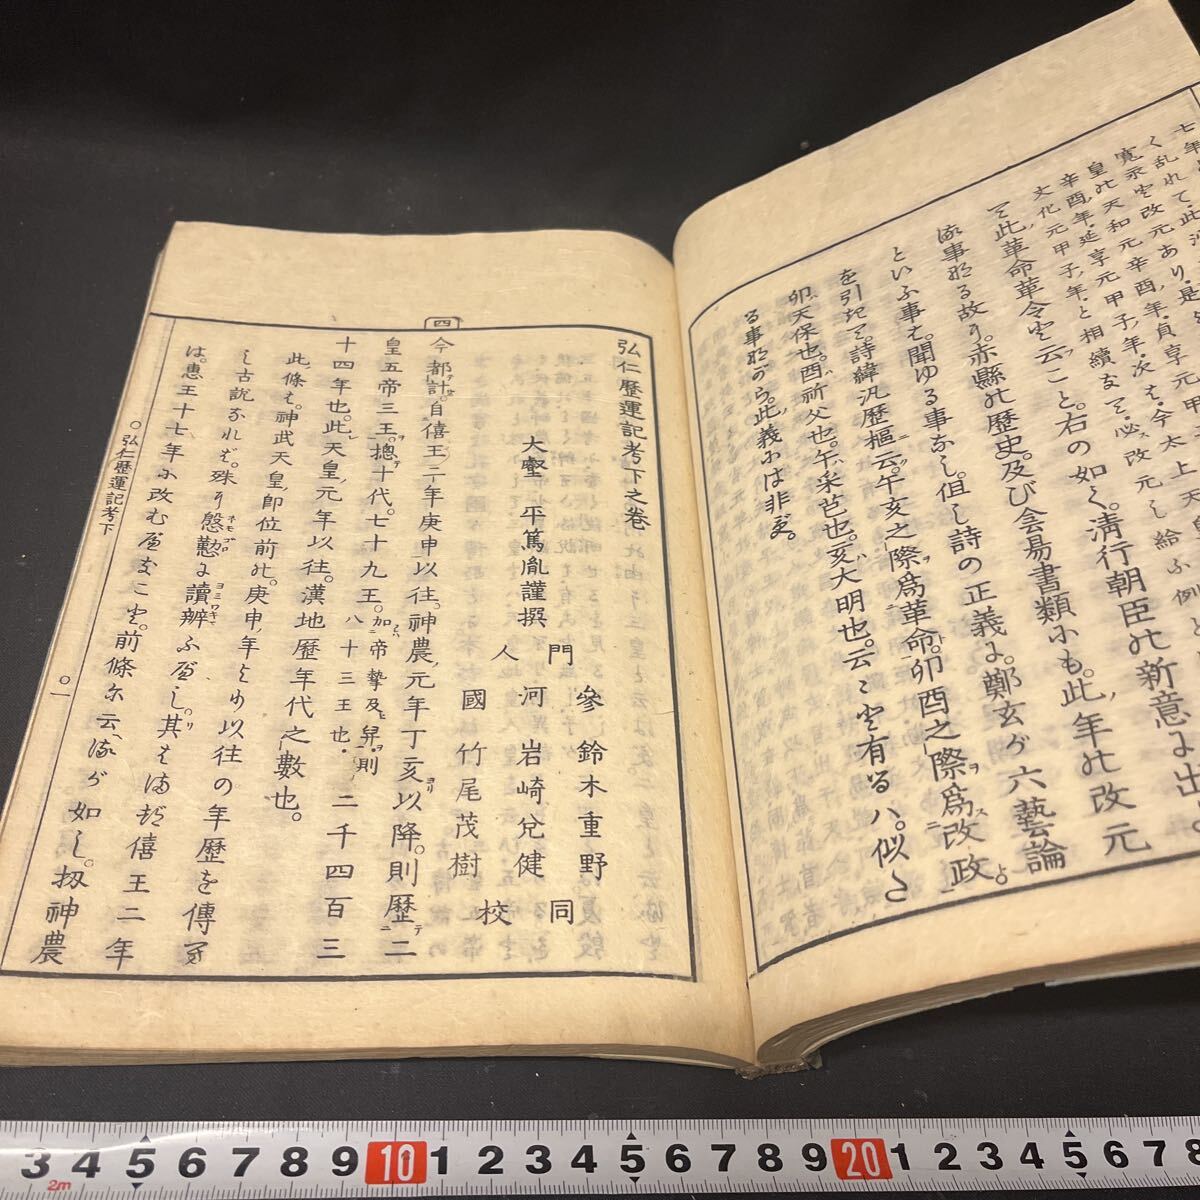 七年
く乱れて此
寛永と改元あり是
皇の天和元辛酉年貞享元
辛酉年延享元甲子年次は今太上天
文化元甲子年と相續きて必改元し給ふ例と
て此革命革令と云こと右の如く清行朝臣の新意に出
る故に赤縣の歴史及び会易書類にも此年の改元
といふ事は聞ゆる事なし但し詩の正義に鄭玄が六藝論
を引きて詩緯汎歴樞云午亥之際爲革命卯酉之際爲改政
卯天保也酉祈父也午采芑也亥大明也云々と有るハ似た
る事ながら此義には非ず
弘仁歴運記考下之卷
大壑 平篤胤謹撰
參 鈴木重野
門 河 岩崎兌健 同
人 國 竹尾茂樹 校
四
今都計自僖王二年庚申以往神農元年丁亥以降則歴二
皇五帝三王總十代七十九王加帝摯及舜則八十三王也二千四百三
十四年也此天皇元年以往漢地歴年代之數也
此條は神武天皇即位前の庚申年より以往の年歴を傳へ
し古説なれば殊に慇懃に讀辨ふべし其はまづ僖王二年
は惠王十七年に改むべきこと前條に云るが如し扨神農
○弘仁歴運記考下
○一
3 2m 4 5 6 7 8 9 10 1 2 3 4 5 6 7 8 9 20 1 2 3 4 5 6 7 8